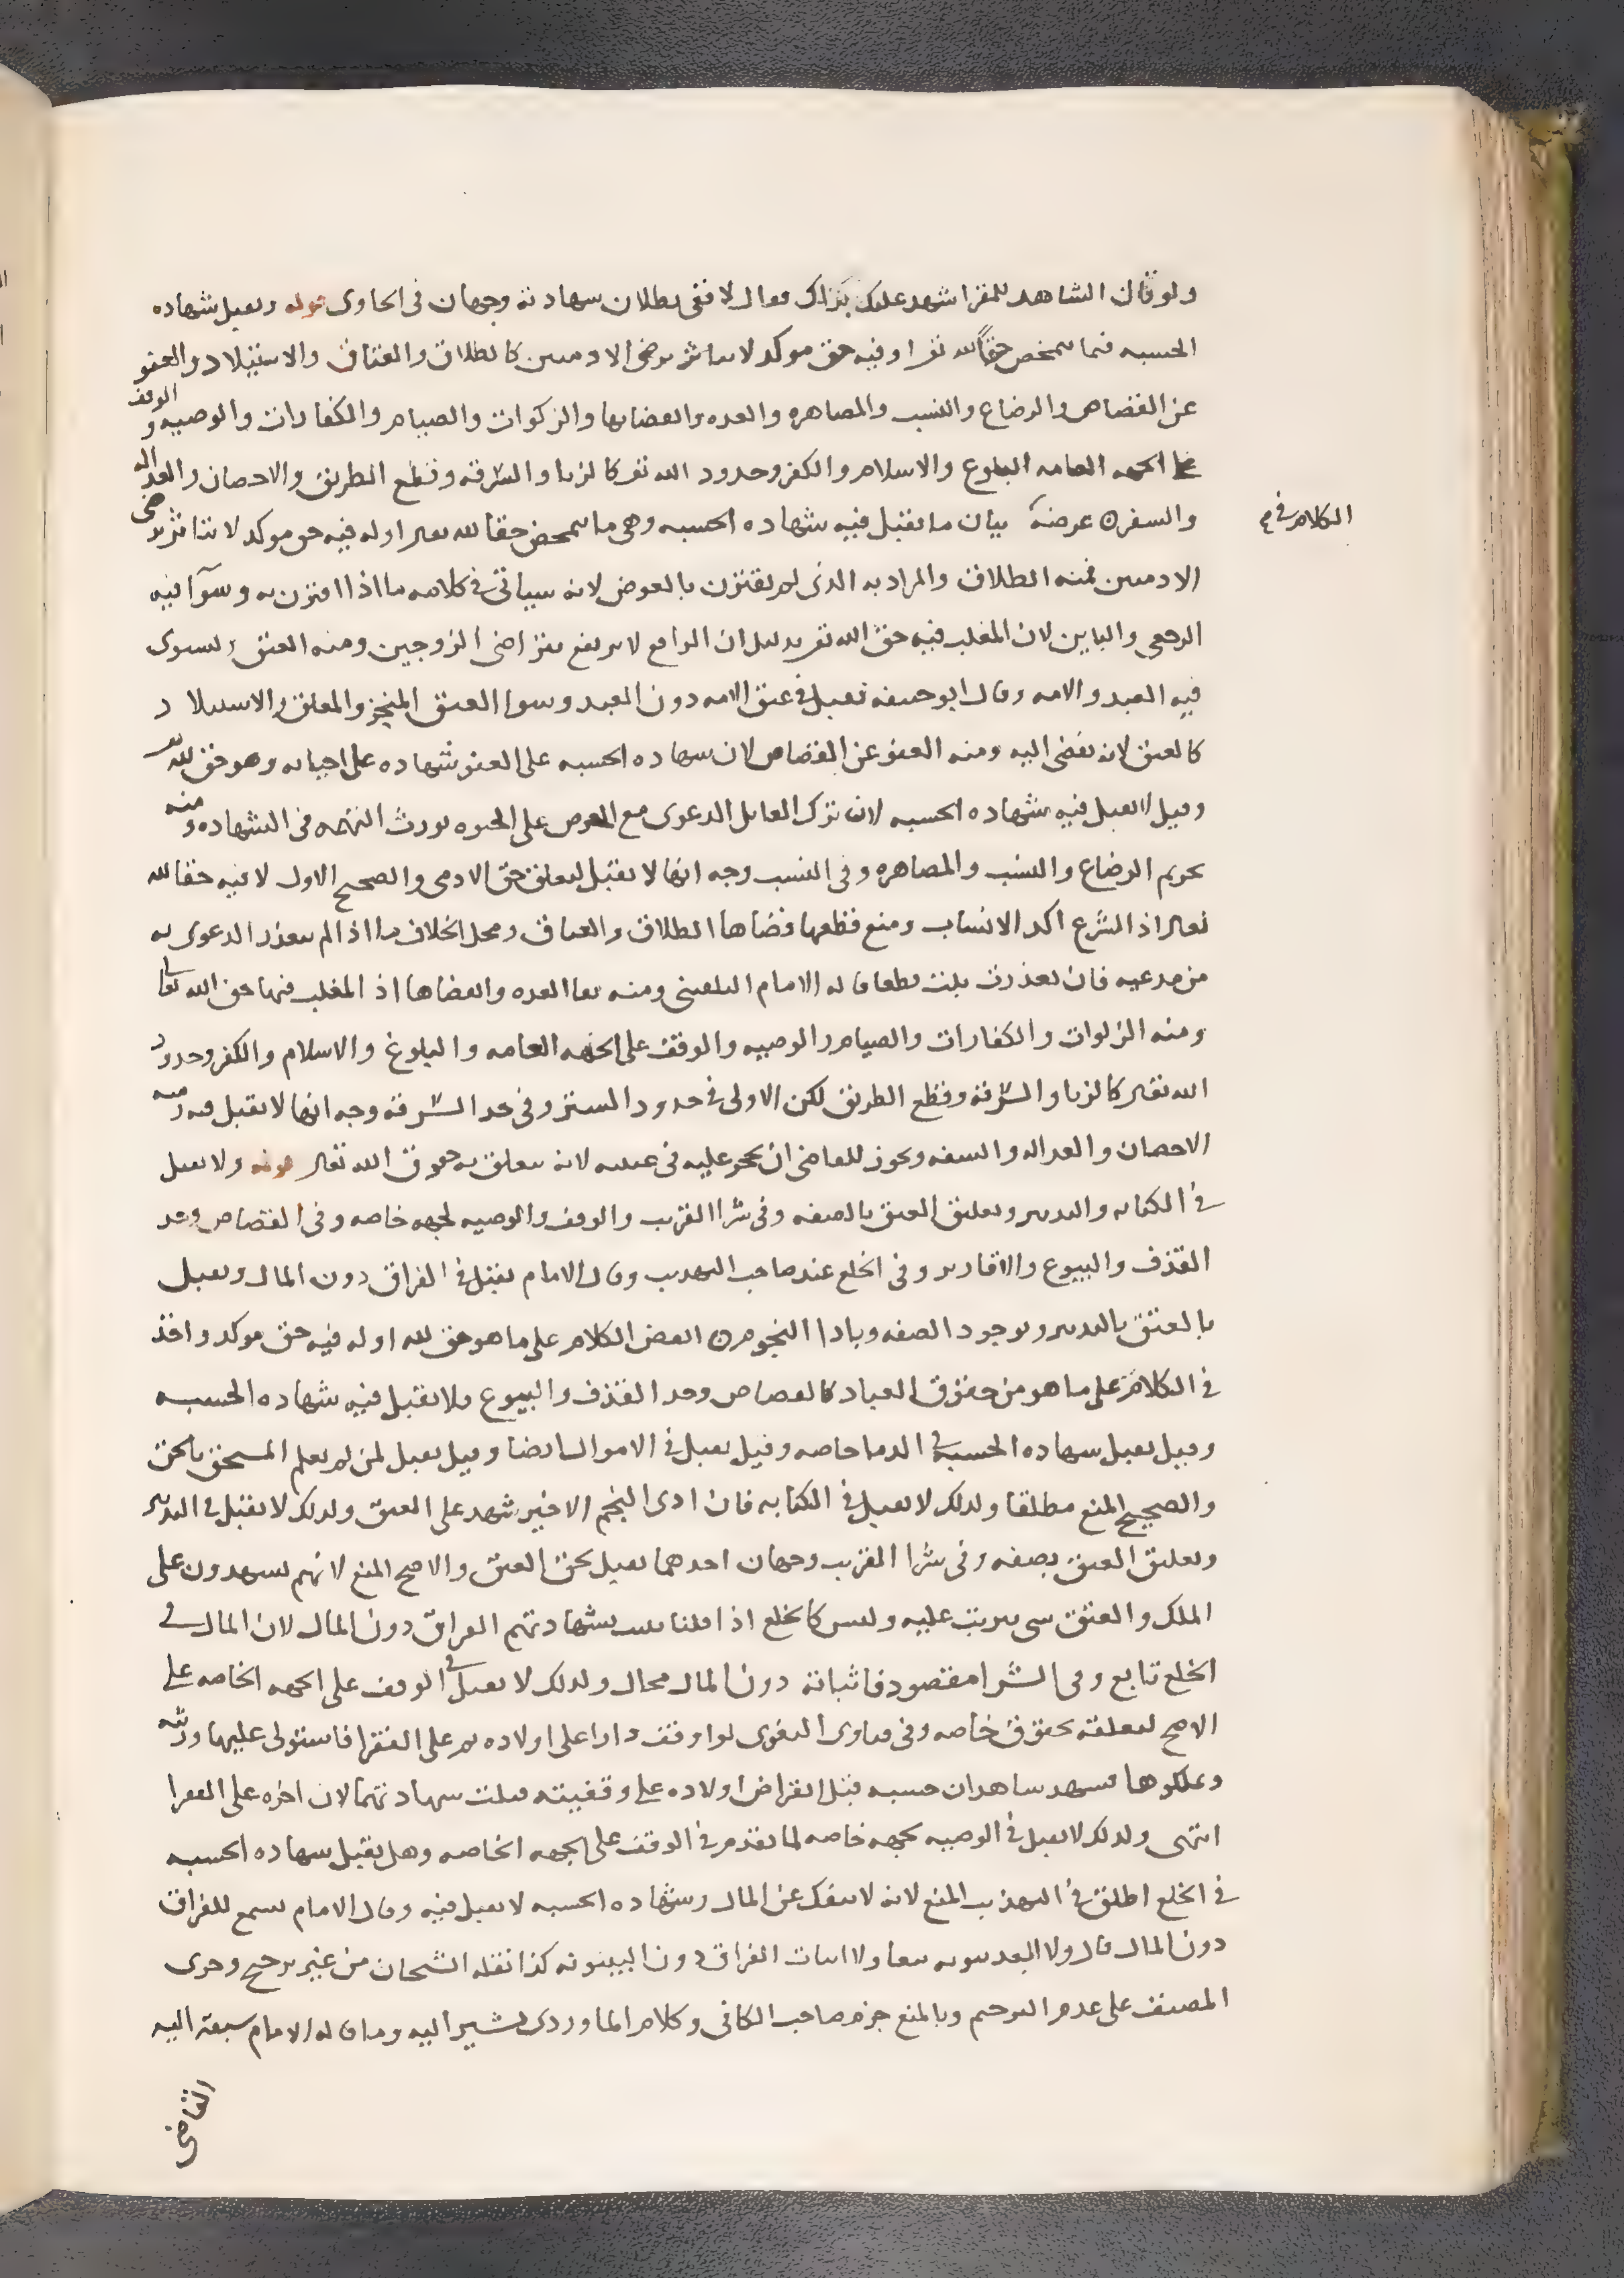 ولو قال الشاهد للمقر اشهد عليك بذلك فقال لا ففي بطلان شهادته وجهان في الحاوي قوله وتقبل شهاده
الحسبه فيما تمحض حقا لله تعالى او فيه حق موكد لا يتاثر برضى الادميين كالطلاق والعتاق والاستيلاد والعفو
عن القصاص والرضاع والنسب والمصاهره والعده وانقضايها والزكوات والصيام والكفارات والوصيه والوقف
على الجهه العامه البلوغ والاسلام والكفر وحدود الله تعالى كالزنا والسرقه وقطع الطريق والاحصان والعداله
والسفه غرضه بيان ما يقبل فيه شهاده الحسبه وهي ما تمحض حقا لله تعالى او له فيه حق موكد لا يتاثر برضى
الكلام في م
الادميين فمنه الطلاق والمراد به الذي لم يقترن بالعوض لانه سياتي في كلامه ما اذا اقترن به وسوآ فيه
الرجعي والباين لان المغلب فيه حق الله تعالى بدليل ان الواقع لا يرتفع بتراضي الزوجين ومنه العتق ويستوى
فيه العبد والامه وقال ابو حنيفه تقبل في عتق الامه دون العبد وسوا العتق المنجز والمعلق والاستيلاد
كالعتق لانه يفضي اليه ومنه العفو عن القصاص لان شهاده الحسبه على العفو شهاده على احيائه وهو حق لله تعالى
وقيل لا تقبل فيه شهاده الحسبه لان ترك القاتل الدعوى مع الحرص على الحيوه يورث التهمه في الشهاده ومنه
تحريم الرضاع والنسب والمصاهره وفي النسب وجه انها لا تقبل لتعلق حق الادمي والصحيح الاول لا فيه حقا لله
تعالى اذ الشرع اكد الانساب ومنع قطعها فضاها الطلاق والعتاق ومحل الخلاف ما اذا لم يتعذر الدعوى به
من مدعيه فان تعذرت قبلت قطعا قاله الامام البلقيني ومنه بقا العده وانقضاها اذ المغلب فيها حق الله تعالى
ومنه الزكوات والكفارات والصيام والوصيه والوقف على الجهه العامه والبلوغ والاسلام والكفر وحدود
الله تعالى كالزنا والسرقه وقطع الطريق لكن الاولى في حدود الستر وفي حد السرقه وجه انها لا تقبل فيه ومنه
الاحصان والعداله والسفه ويجوز للقاضي ان يحجر عليه في غيبته لانه يتعلق به حقوق الله تعالى قوله ولا تقبل
في الكتابه والتدبير وتعليق العتق بالصفه وفي شرا القريب والوقف والوصيه لجهه خاصه وفي القصاص وحد
القذف والبيوع والاقارير وفي الخلع عند صاحب التهذيب وقال الامام يقبل في الفراق دون المال وتقبل
بالعتق بالتدبير وبوجود الصفه وبادا النجوم انقضى الكلام على ما هو حق لله او له فيه حق موكد واخذ
في الكلام على ما هو من حقوق العباد كالقصاص وحد القذف والبيوع ولا تقبل فيه شهاده الحسبه
وقيل تقبل شهاده الحسبه في الدما خاصه وقيل تقبل في الاموال ايضا وقيل تقبل لمن لم يعلم المستحق بالحق
والصحيح المنع مطلقا ولذلك لا تقبل في الكتابه فان ادى النجم الاخير شهد على العتق ولذلك لا تقبل في التدبير
وتعليق العتق بصفه وفي شرا القريب وجهان احدهما تقبل بحق العتق والاصح المنع لانهم يشهدون على
الملك والعتق شي يترتب عليه وليس كالخلع اذا قلنا يثبت بشهادتهم الفراق دون المال لان المال في
الخلع تابع وفي الشرا مقصود فاثباته دون المال محال ولذلك لا تقبل في الوقف على الجهه الخاصه على
الاصح لتعلقه بحقوق خاصه وفي فتاوى البغوي لو وقف دارا على اولاده ثم على الفقرا فاستولى عليها ورثته
وتملكوها فشهد شاهدان حسبه قبل انقراض اولاده على وقفيته قبلت شهادتهما لان اخره على الفقرا
انتهى ولذلك لا تقبل في الوصيه بجهه خاصه لما تقدم في الوقف على الجهه الخاصه وهل تقبل شهاده الحسبه
في الخلع اطلق في التهذيب المنع لانه لا ينفك عن المال وشهاده الحسبه لا تقبل فيه وقال الامام تسمع للفراق
دون المال قال ولا ابعد ثبوته تبعا ولا اثبات الفراق دون البينونه كذا نقله الشيخان من غير ترجيح وجرى
المصنف على عدم الترجيح وبالمنع جزم صاحب الكافي وكلام الماوردي يشير اليه وما قاله الامام سبقه اليه
القاضي